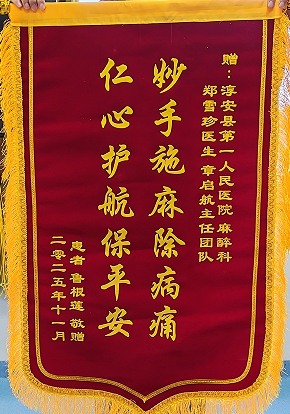 赠：淳安县第一人民医院 麻醉科
郑雪珍医生 章启航主任团队
妙手施麻除病痛
仁心护航保平安
患者 鲁根莲 敬赠
二零二五年十一月